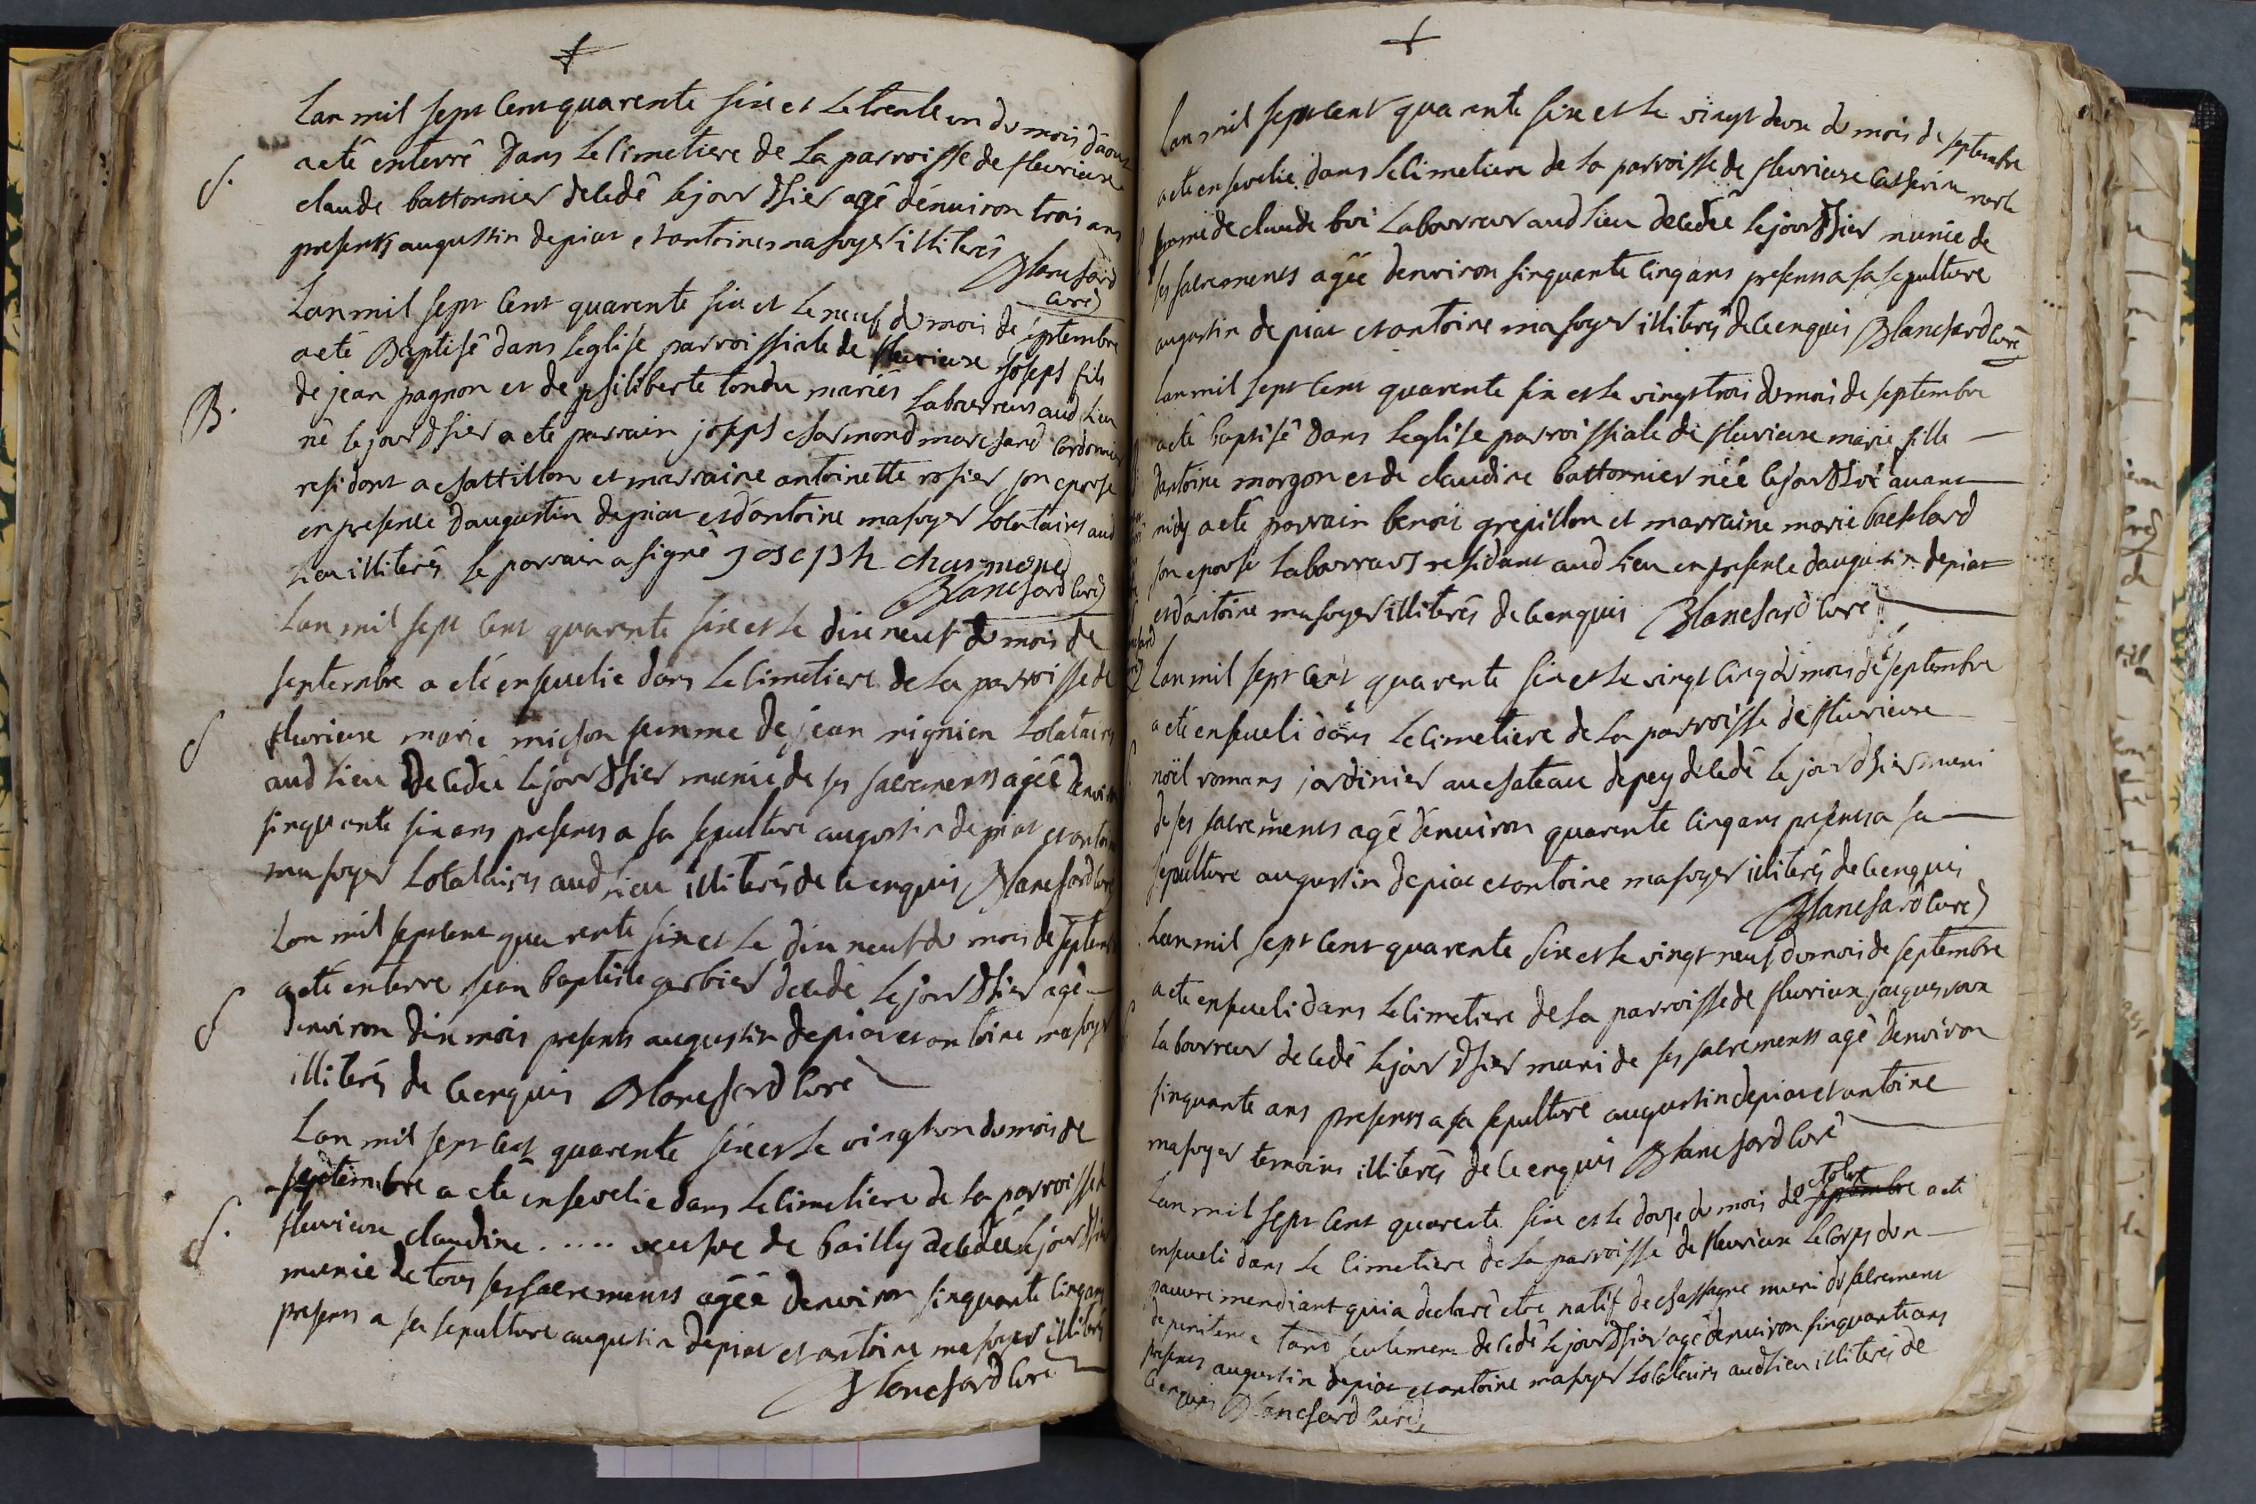 Lan mil sept Cent quarente sixe et Le trente un du mois daout
a etê enterrê dans Le Cimetiere de La parroisse de fleurieuxe
S.
claude battonnier decedê le jour d'hier agê dénuiron trois ans
presents augustin depiat et antoine masoyer illiterés
Blanchard
Curé
Lan mil sept Cent quarente sixe et Le neuf du mois de septembre
a etê Baptisê dans leglise parroissiale de fleurieuxe joseph fils
de jean pagnon et de philiberte tondu mariés Laboureurs aud Lieu
B.
né le jour d'hier a etê parrain joseph charmond marchand Cordonnier
residant a chattillon et marraine antoinette rosier son epouse
en presence daugustin depiat et dantoine masoyer Locataires aud
Lieu illiterés le parrain a signê Joseph charmond
Blanchard Curé
Lan mil sept Cent quarente sixe et Le dixe neuf du mois de
septembre a eté enseuelie dans Le Cimetiere de La parroisse de
S
fleurieuxe marie michon femme de jean mignien Locataires
aud Lieu decedée le jour d'hier munie de ses sacrements agéé denuiron
sinquante sixe ans presents a sa sepulture augustin depiat et antoine
masoyer Locataires aud Lieu illiterés de ce enquis Blanchard Curé
Lan mil sept Cent quarente sixe et Le dixe neuf du mois de septembre
a etê enterre jean baptiste gerbier decedé le jour d'hier agê
S
denuiron dix mois presents augustin depiat et antoine masoyer
illiterés de Ce enquis Blanchard Curé
Lan mil sept Cent quarente sixe et Le vingt un du mois de
septembre a etê enseuelie dans Le Cimetiere de La parroisse de
S.
fleurieuxe claudine ..... veufve de bailly decedée le jour d'hier
munie de tous ses sacrements agéé denuiron sinquante Cinq ans
presens a sa sepulture augustin depiat et antoine masoyer illiterés
Blanchard Curé
Lan mil sept Cent quarente sixe et Le vingt deux du mois de septembre
a eté enseuelie dans Le Cimetiere de La parroisse de fleurieuxe Catherine
femme de claude boi Laboureur aud Lieu decedée le jour d'hier munie de
ses sacrements agéé denviron sinquante Cinq ans presents a sa sepulture
augustin depiat et antoine masoyer illiterés de Ce enquis Blanchard Curé
Lan mil sept Cent quarente six et Le vingt trois du mois de septembre
a etê baptisê dans leglise parroissiale de fleurieuxe marie fille
dantoine morgon et de claudine battonnier néé le jour d'hié auant
midy a etê parrain benoit grepillon et marraine marie
son epouse Laboureurs residants aud Lieu en presence daugustin depiat
et dantoine masoyer illiterés de Ce enquis Blanchard Curé
Lan mil sept Cent quarente sixe et Le vingt Cinq du mois de septembre
a eté enseueli dans Le Cimetiere de La parroisse de fleurieuxe
noël romans jardinier au chateau depey decedê le jour d'hier muni
de ses sacrements agê dénuiron quarente Cinq ans presents a sa
sepulture augustin depiat et antoine masoyer illiterés de Ce enquis
Blanchard Curé
Lan mil sept Cent quarente sixe et Le vingt neuf du mois de septembre
a etê enseueli dans Le Cimetiere de La parroisse de fleurieux jacques
Laboureur decedê le jour d'hier muni de ses sacrements agê denviron
sinquante ans presents a sa sepulture augustin depiat et antoine
masoyer temoins illiterés de Ce enquis Blanchard Curé
Lan mil sept Cent quarente sixe et Le douze du mois de septembre octobre a eté
enseueli dans Le Cimetiere de La parroisse de fleurieux Le Corps dun
pauure mendiant qui a declarê etre natif de chassagne muni du sacrement
de penitence tant seulement decedê le jour d'hier agê denuiron sinquante ans
presents augustin depiat et antoine masoyer Locataires aud Lieu illiterés de
Ce enquis Blanchard Curé